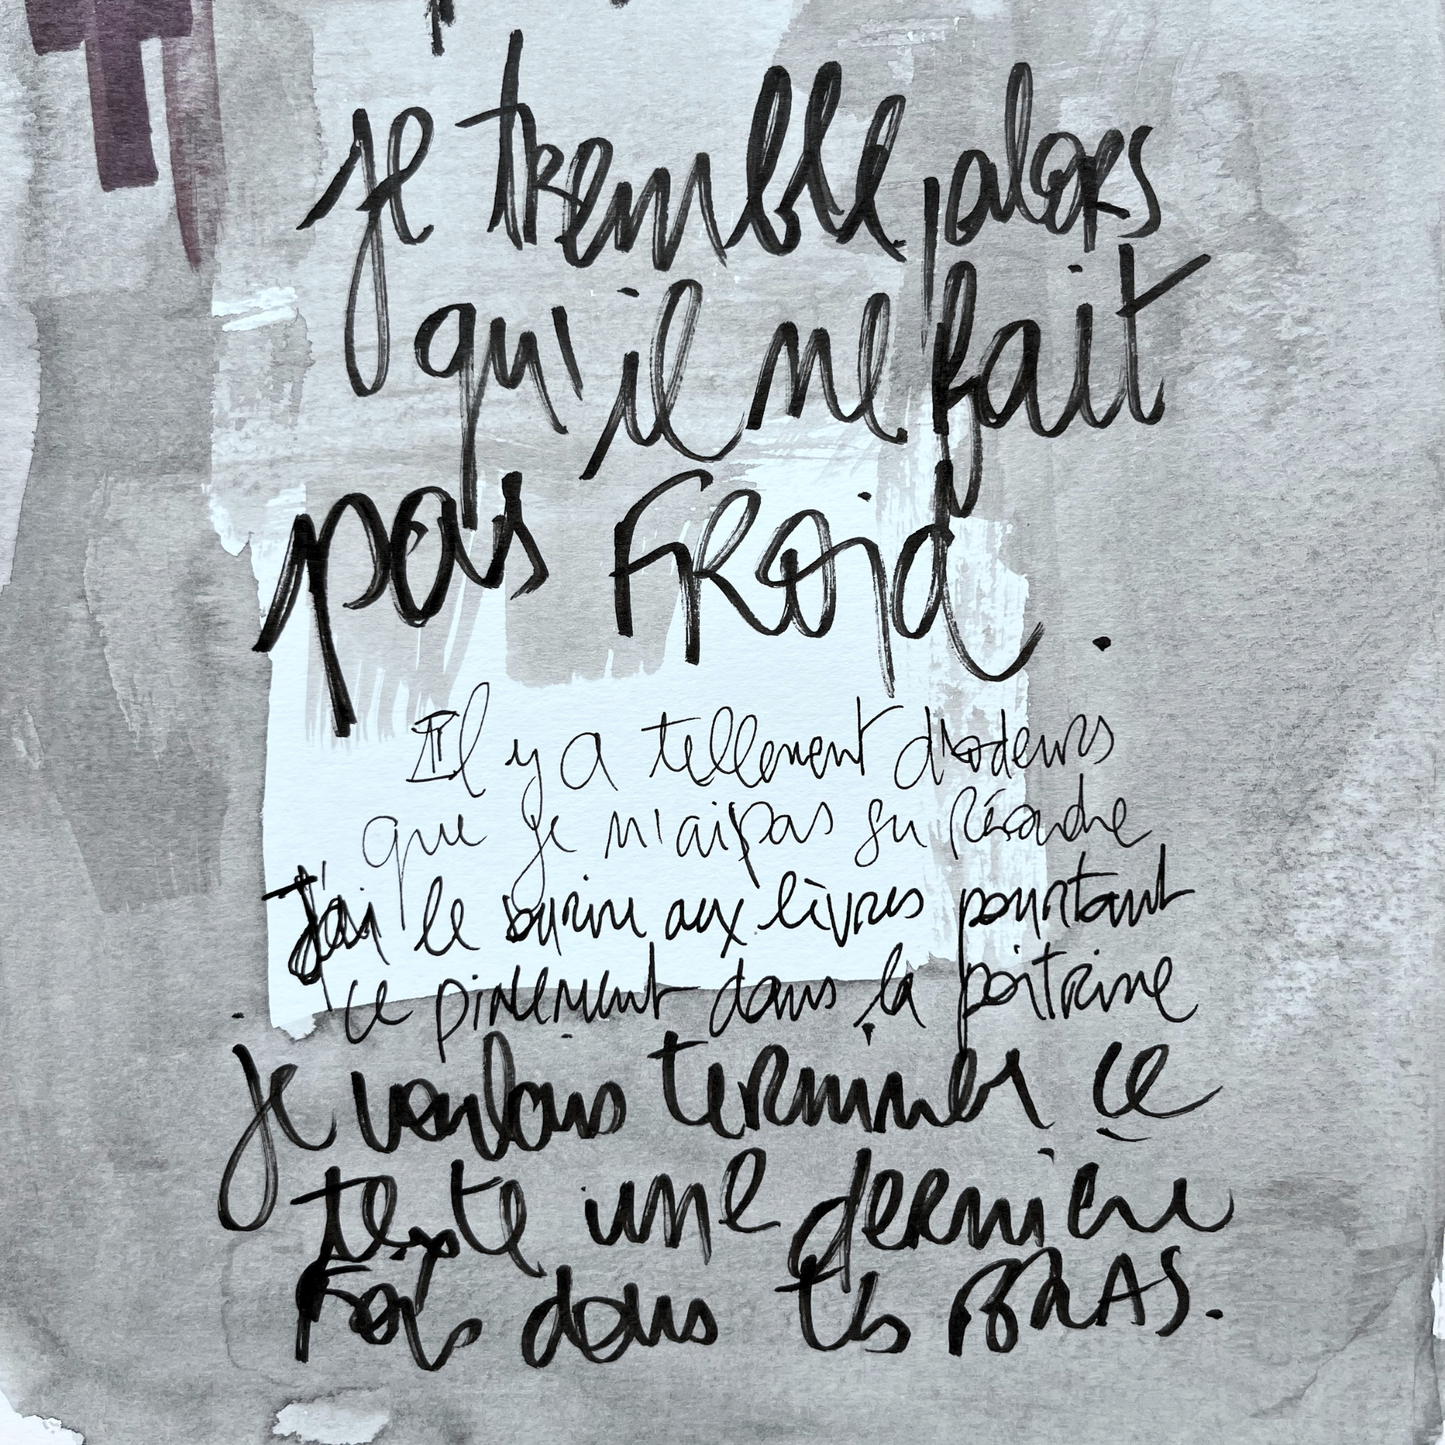 je tremble alors
qu'il ne fait
pas FROid.
Il y a tellement d'odeurs
que je n'ai pas su
J'ai le aux livres pourtant
ce pincement dans la poitrine
je voulais terminer ce
texte une dernière
Fois dans tes BRAS.